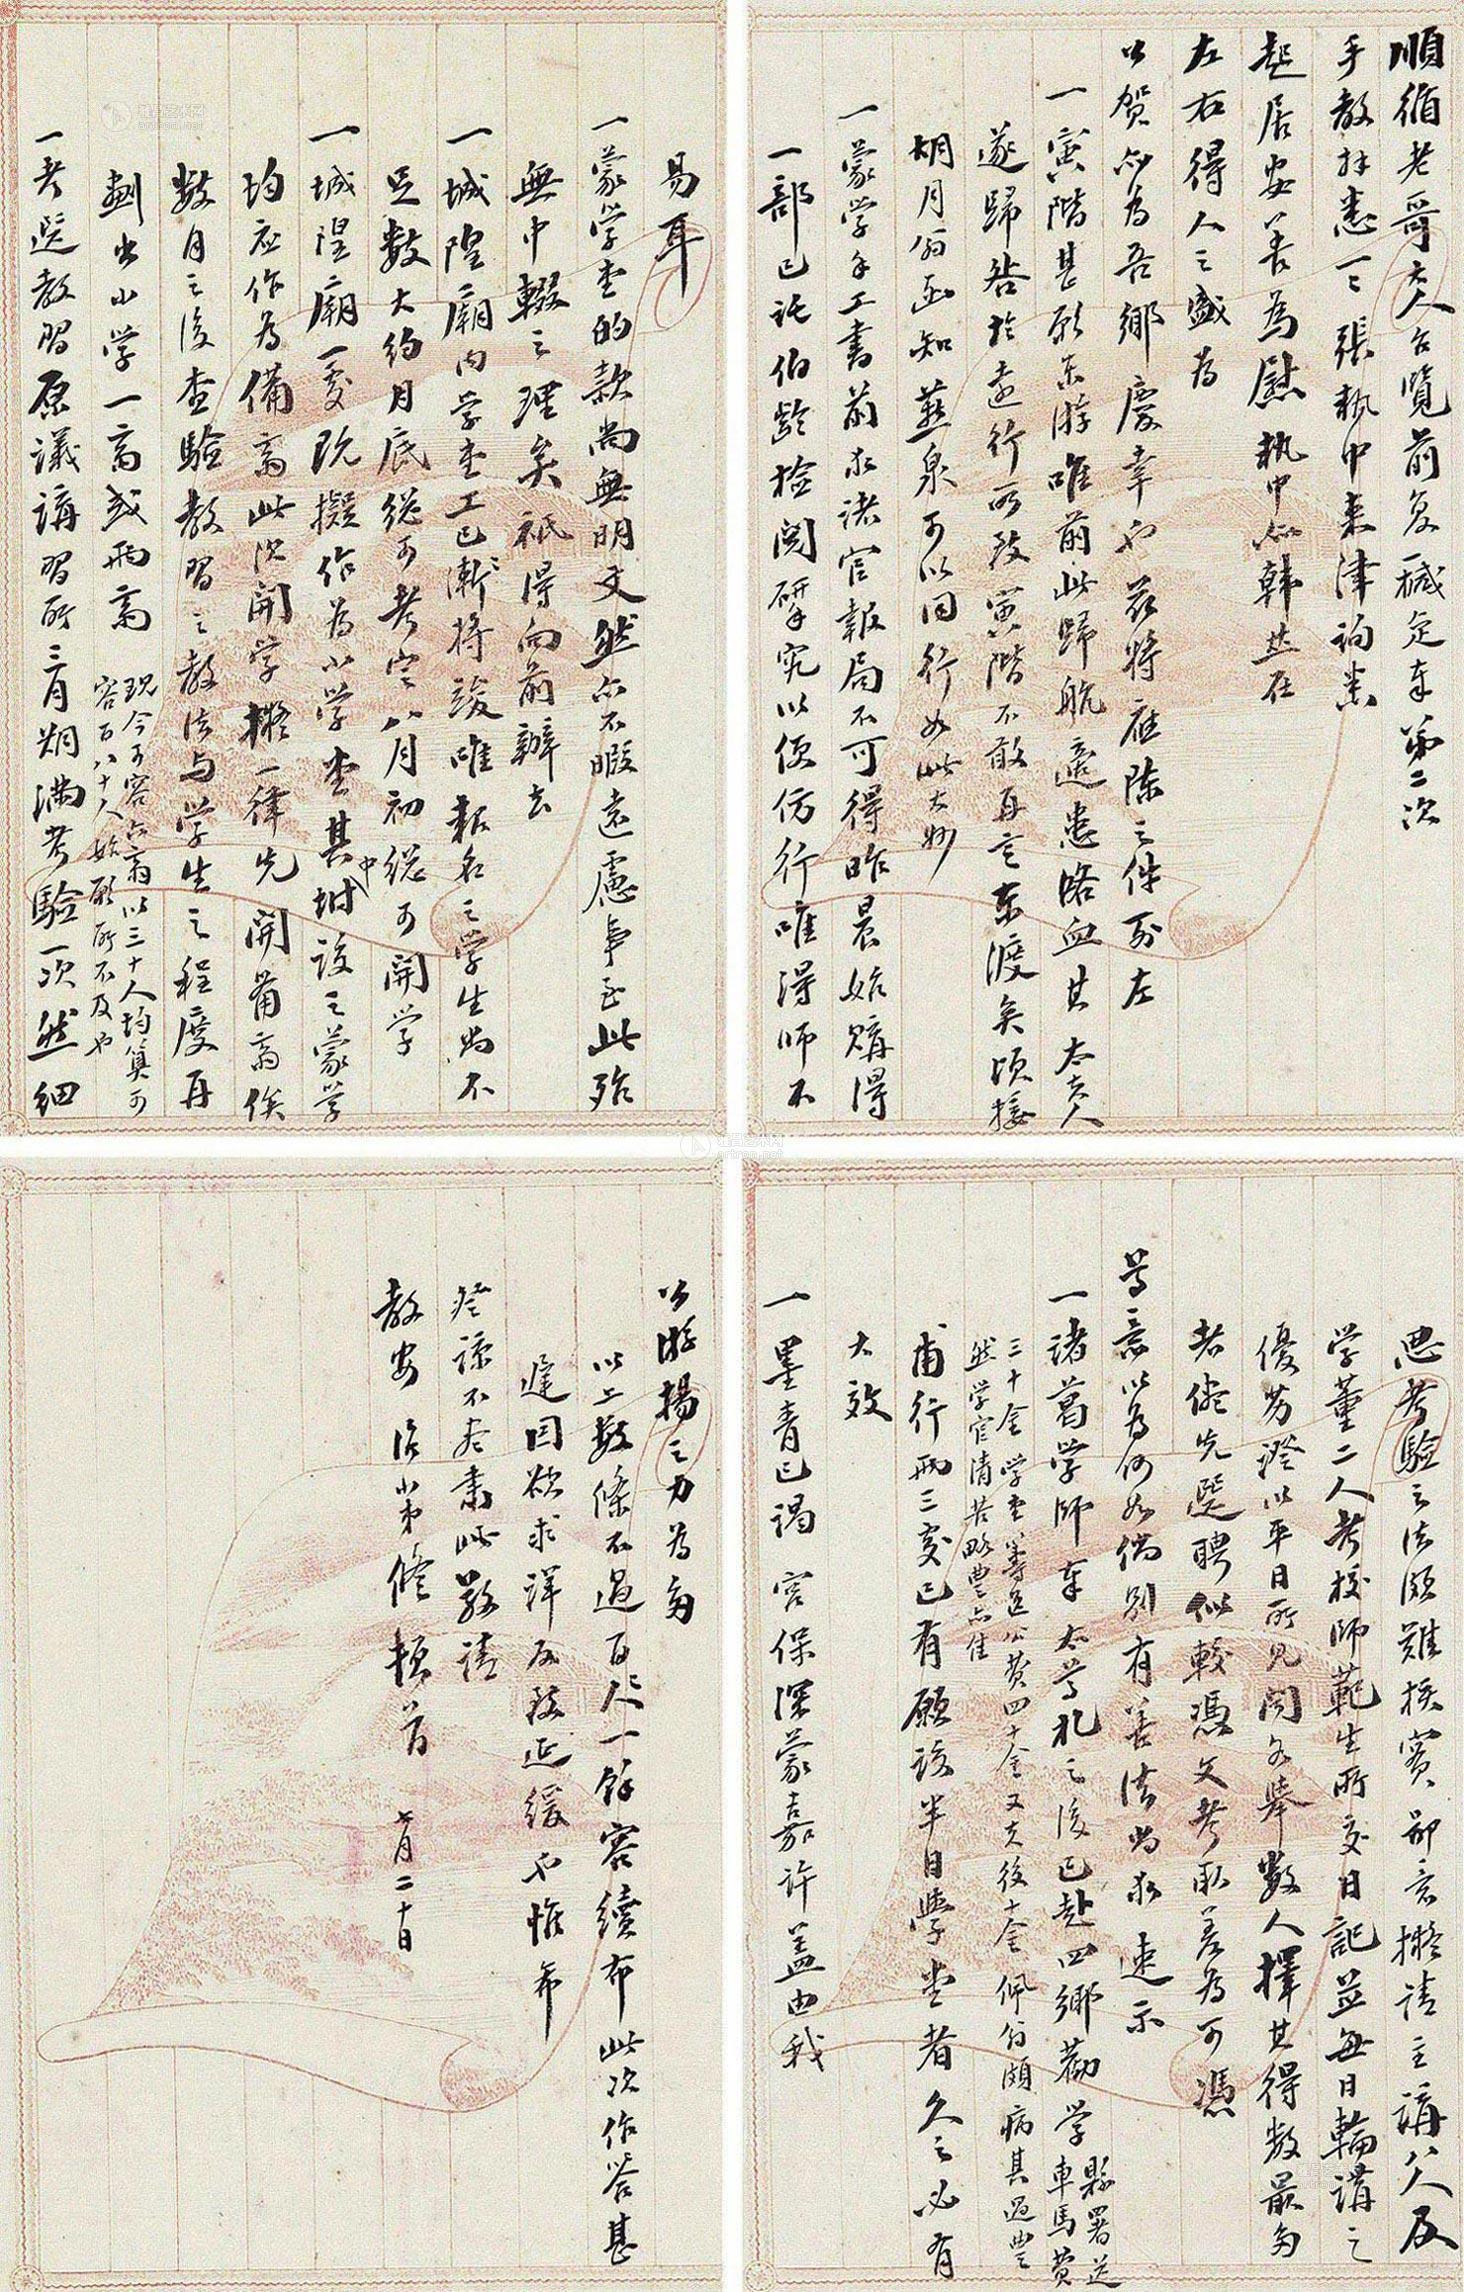 順循老哥大人台覽前复一椷定車第二次
手教拜悉一一張執中來津詢悉
起居安善為慰執中如韓共在
左右得人之盛為
公賀亦為吾鄉慶幸也茲將應陳之件列左
一寅階甚願東游唯前此歸航適患略血其太夫人
遂歸咎於遠行所致寅階不敢再言東渡矣頃接
胡月舫函知燕泉可以同行如此大妙
一蒙學手工書前求諸官報局不可得昨晨始購得
一部已託伯齡檢閱研究以便仿行唯得師不
易耳
一蒙学堂的款尚無明文然亦不暇遠慮事至此殆
無中輟之理矣祇得向前辦去
一城隍廟内学堂工已漸漸將竣唯報名之学生尚不
足數大約月底總可考定八月初總可開学
一城隍廟一處既擬作為小學堂其中坿設之蒙学
均應作為備齋此次開学擬一律先開備齋俟
數月之後查驗教習之教法与学生之程度再
劃出小学一齋或兩齋
現今可容六齋以三十人均算可
容百八十人始願所不及也
一考選教習原議講習所三月期滿考驗一次然細
思考驗之法頗難核實鄙意擬請主講八人及
学董二人考校師範生所交日記並每日輪講之
優劣證以平日所見聞各舉數人擇其得數最多
者儘先選聘似較憑文考取差為可憑
尊意以為何如倘別有善法尚求速示
一諸葛学師奉太尊札之後已赴四鄉勸学車馬費
縣署送
三十金学堂籌送公費四十金又支後十金佩翁頗病其過豐
然学官清苦略豐亦佳
甫行兩三處已有願設半日學堂者久之必有
大效
一墨青已謁宮保深蒙嘉許蓋由我
公游揚之力為多
以上數條不過百分一餘容續布此次作答甚
遲因欲求詳反致延緩也惟希
登諒不尽肅此敬請
教安 治小弟修頓首 七月二十日